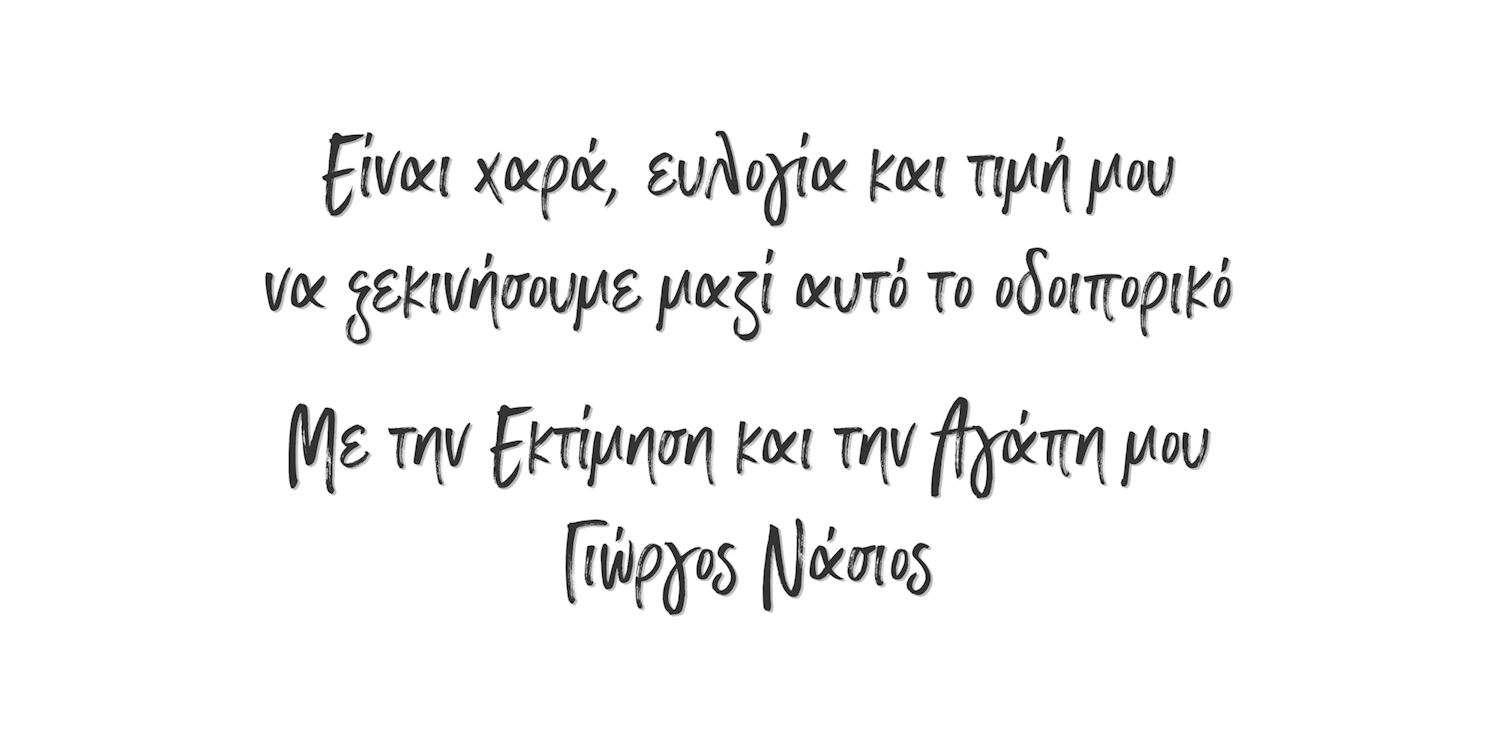 Είναι χαρά, ευλογία και τιμή μου
να ξεκινήσουμε μαζί αυτό το οδοιπορικό
Με την Εκτίμηση και την Αγάπη μου
Γιώργος Νάσιος